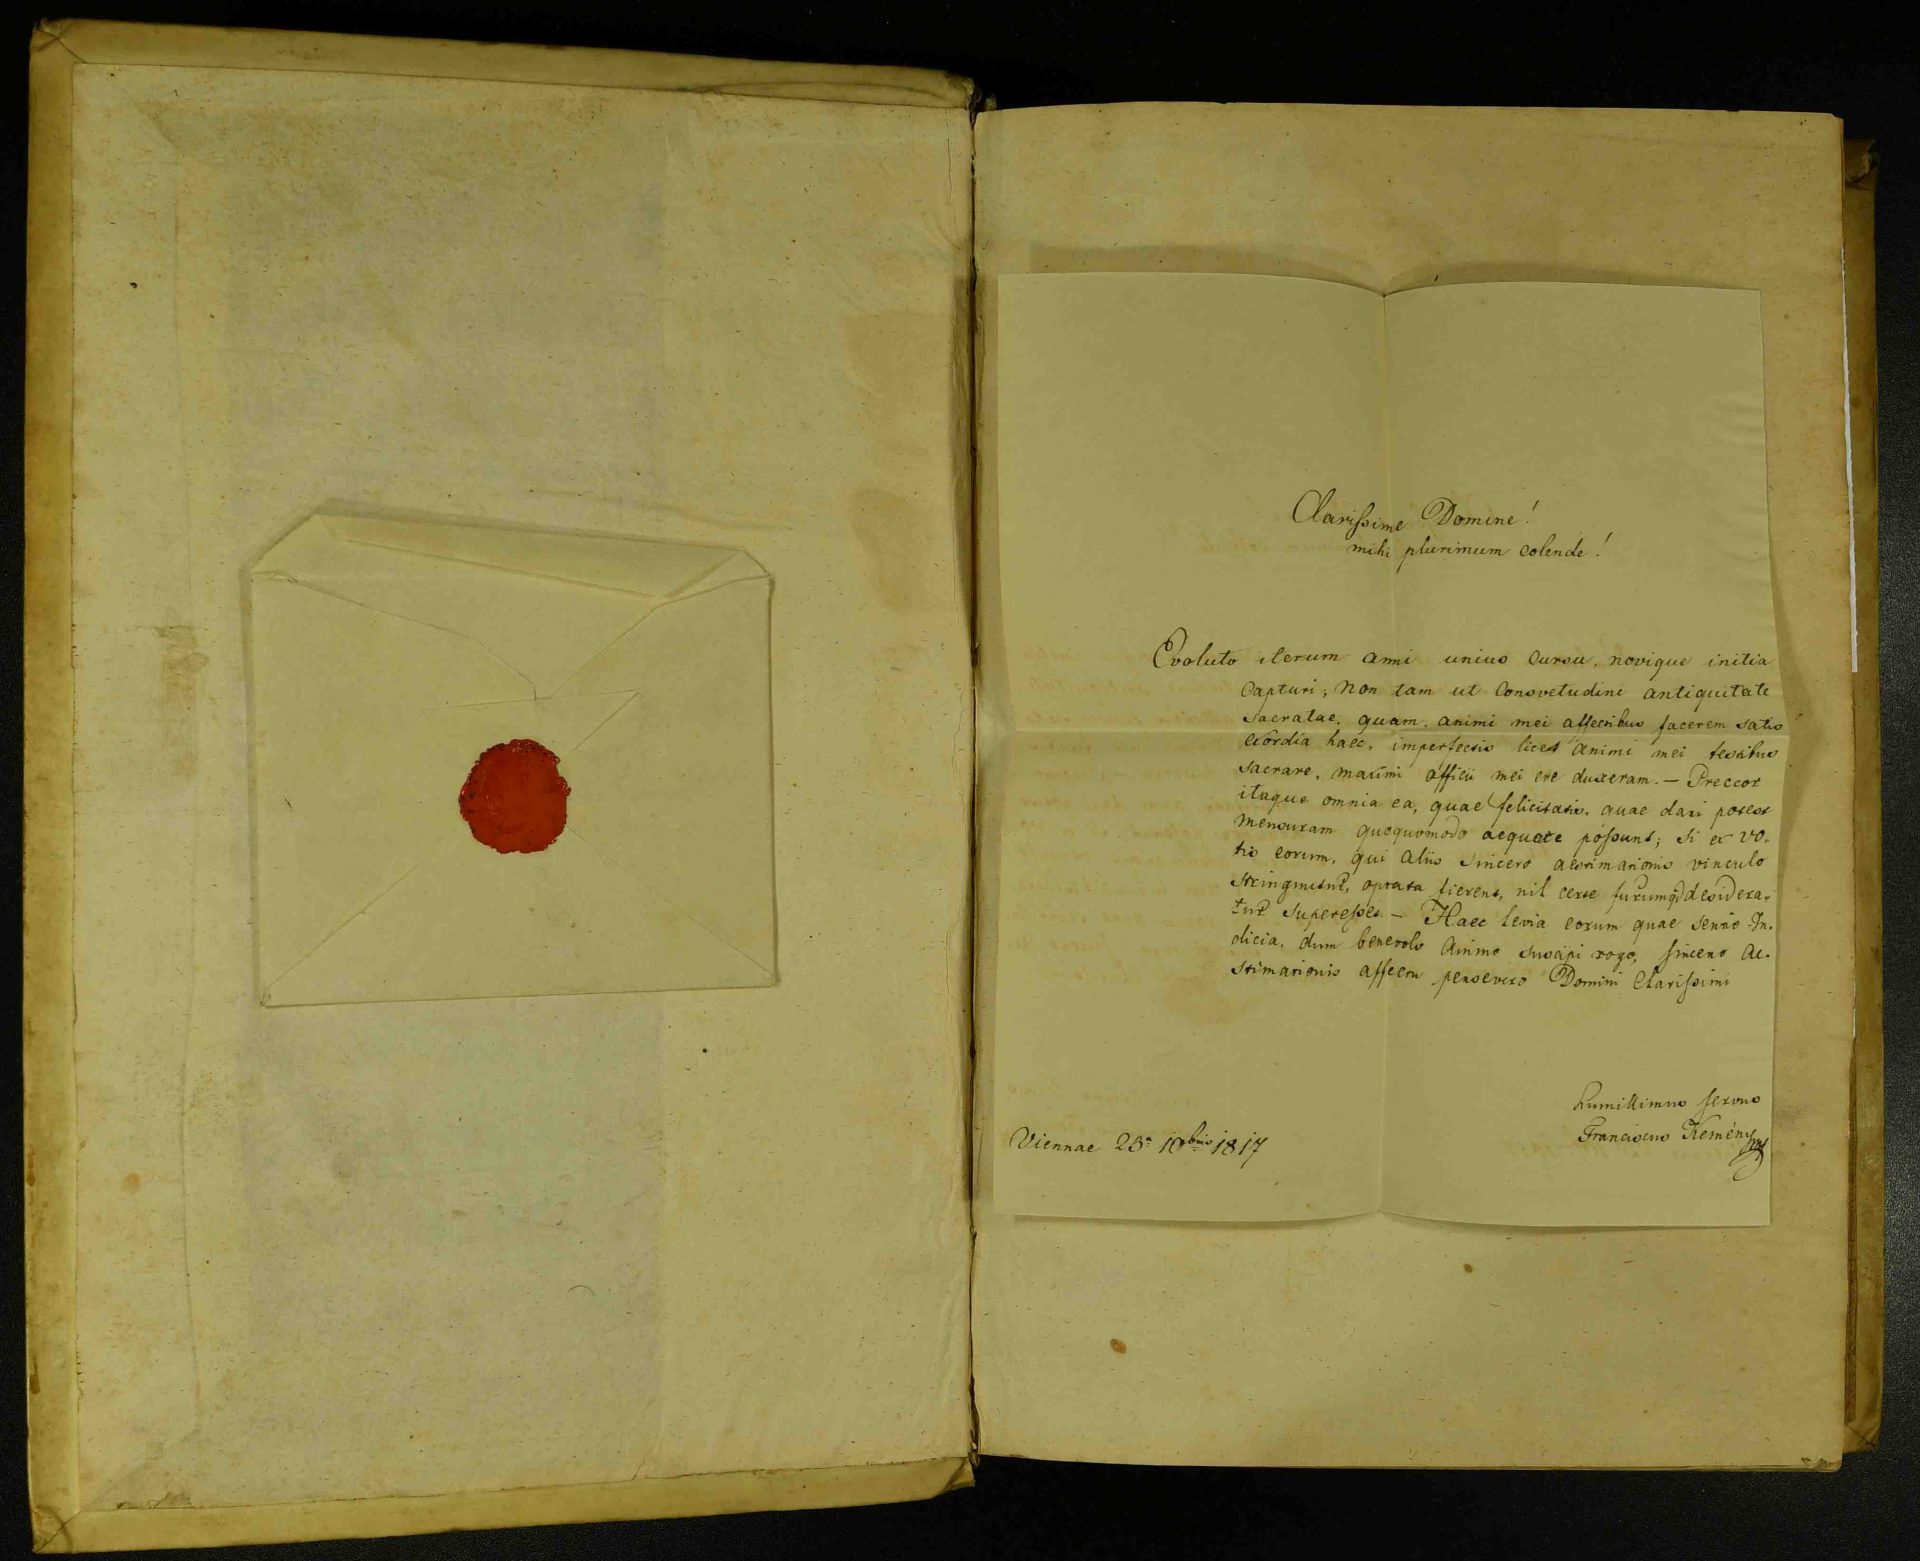 Clarissime Domine!
mihi plurimum colende!
Evoluto iterum anni unius Cursu, novique initia
Capturi; non tam ut Consvetudini antiquitate
sacratae, quam animi mei affectibus facerem satis
exordia haec, imperfectis licet animi mei testibus
sacrare, maximi officii mei ere duxeram. — Preccor
itaque omnia ea, quae felicitatis, quae dari potest
mensuram quoquomodo aequare possunt; si ex vo-
tis eorum, qui aliis sincero aestimationis vinculo
stringuntur, optata fierent, nil certe
superesset. — Haec levia eorum quae sentio In-
dicia, dum benevolo animo suscipi rogo, sincero ae-
stimationis affectu persevero Domini Clarissimi
humillimus servus
Franciscus Kemény
Viennae 25a 10bris 1817